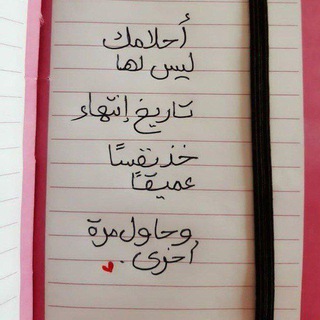 أحلامك
ليس لها
تاريخ إنتهاء
خذ نفسًا
عميقًا
وحاول مرة
أخرى.